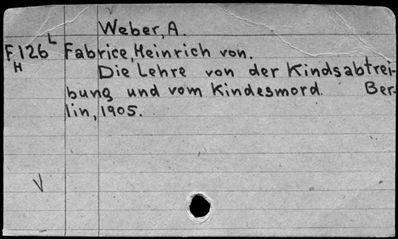 Weber, A.
F126 L Fabrice, Heinrich von.
H
Die Lehre von der Kindsabtrei-
bung und vom Kindesmord. Ber-
lin, 1905.